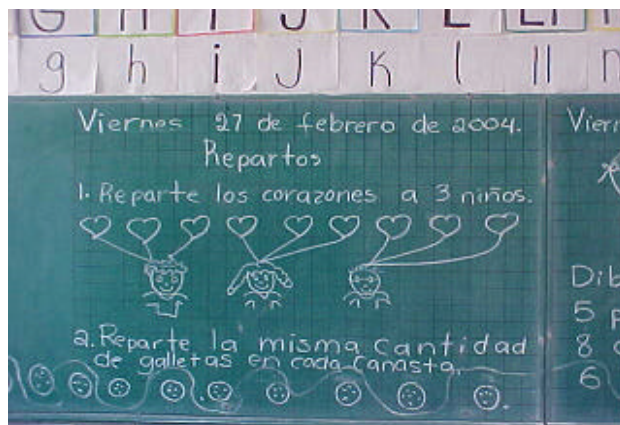 g h i J K l ll n
Viernes 27 de febrero de 2004.
Repartos
1. Reparte los corazones a 3 niños.
2. Reparte la misma cantidad
de galletas en cada canasta.
Vier
Dib
5
8
6